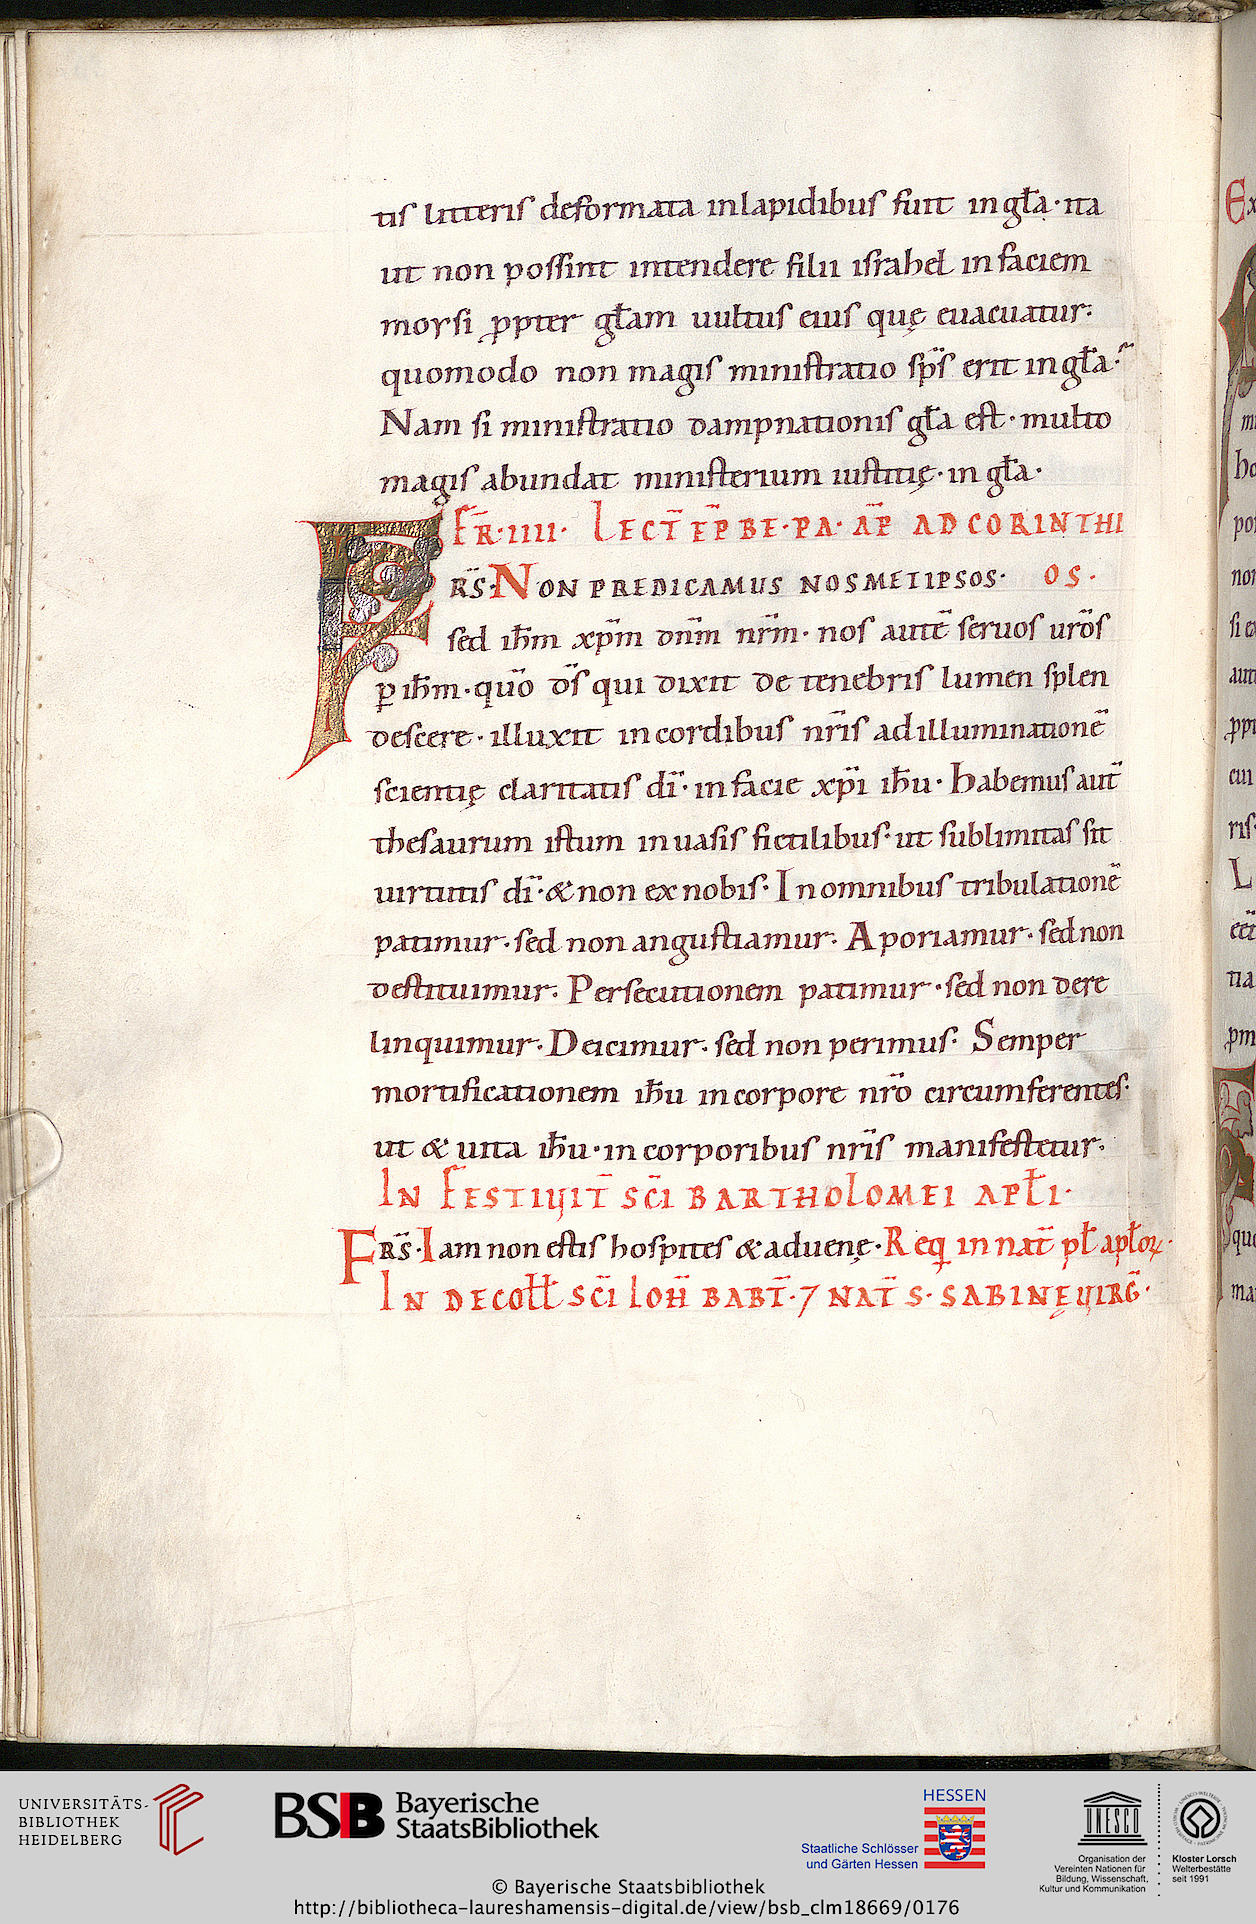 tis litteris deformata inlapidibus fuit in gła· ita
ut non possint intendere filii israhel in faciem
moysi ꝓpter głam uultus eius quę euacuatur:
quomodo non magis ministratio sp̄s erit in gła·
Nam si ministratio dampnationis gła est· multo
magis abundat ministerium iustitię· in gła·
FR̄·IIII· LECT̄ EP̄ BE·PA·AP̄ AD CORINTHI
RS̄·NON PREDICAMUS NOSMETIPSOS· OS·
sed ih̄m xp̄m dn̄m nr̄m· nos autē seruos ur̄os
ꝑ ih̄m· quō d̄s qui dixit de tenebris lumen splen
descere· illuxit in cordibus nr̄is ad illuminationē
scientię claritatis dī· in facie xp̄i ih̄u· Habemus aut̄
thesaurum istum in uasis fictilibus· ut sublimitas sit
uirtutis dī· & non ex nobis· In omnibus tribulationē
patimur· sed non angustiamur· Aporiamur· sed non
destituimur· Persecutionem patimur· sed non dere
linquimur· Deicimur· sed non perimus· Semper
mortificationem ih̄u in corpore nr̄o circumferentes·
ut & uita ih̄u· in corporibus nr̄is manifestetur·
IN FESTIVIT̄ SC̄I BARTHOLOMEI APŁI·
FRS̄·Iam non estis hospites & aduenę· Req̄ in nat̄ pł apłoꝝ·
IN DECOŁŁ SC̄I IOH̄ BABT̄·7 NAT̄ S· SABINĘ VIRḠ·
UNIVERSITÄTS-
BIBLIOTHEK
HEIDELBERG
BSB Bayerische
StaatsBibliothek
HESSEN
Staatliche Schlösser
und Gärten Hessen
UNESCO
Organisation der
Vereinten Nationen für
Bildung, Wissenschaft,
Kultur und Kommunikation
Kloster Lorsch
Welterbestätte
seit 1991
© Bayerische Staatsbibliothek
http://bibliotheca-laureshamensis-digital.de/view/bsb_clm18669/0176